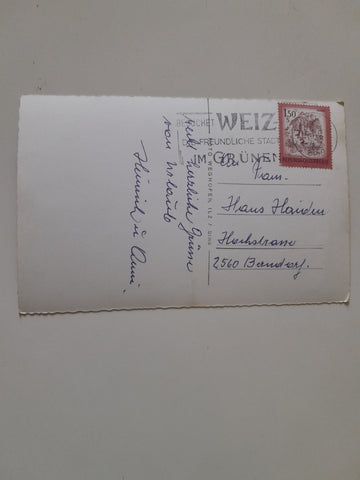 BESUCHET
WEIZ-
DIE FREUNDLICHE STADT
IM GRÜNEN
1.50
REPUBLIK ÖSTERREICH
Recht herzliche Grüsse
vom Urlaub
Heinrich u. Anni.
An Fam.
Hans Haiden
Hochstrasse
2560 Berndorf.